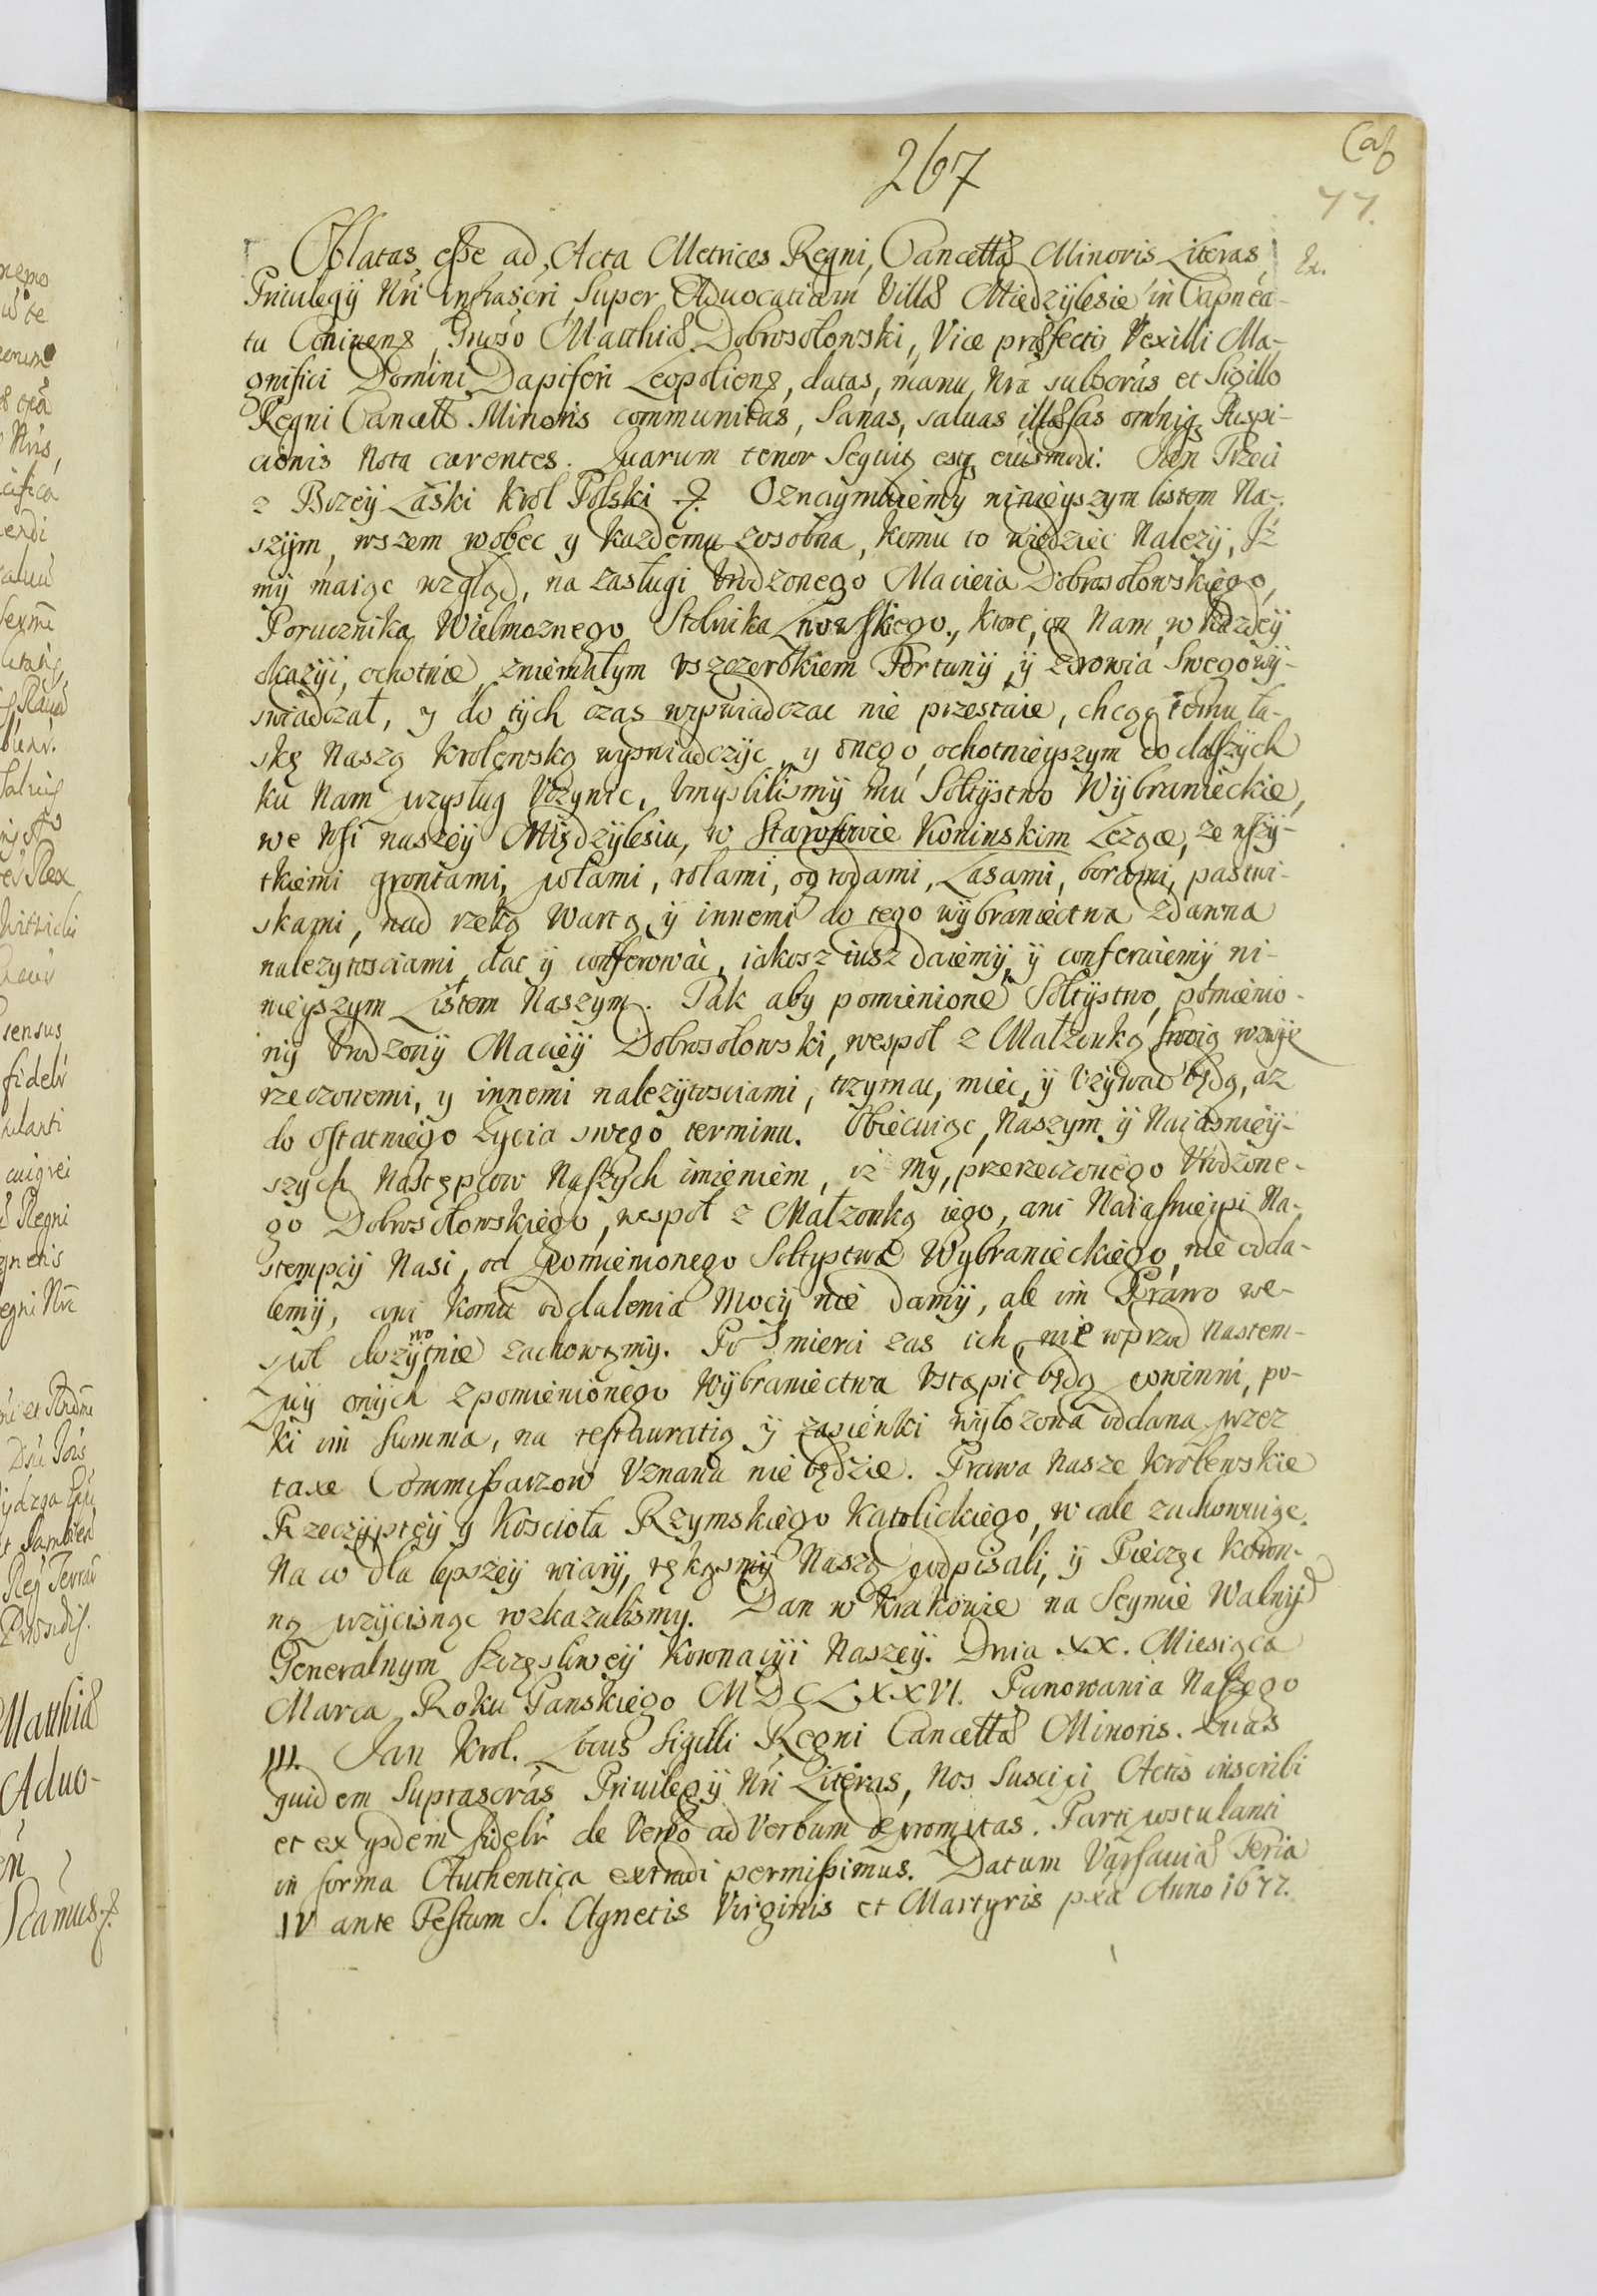 267
77.
Oblatas esse ad Acta Metrices Regni, Cancellæ Minoris Literas
Priuilegÿ Nri infrascri, Super Aduocatiam Villæ Miedzÿlesie in Capnea-
tu Coninens, Gnoso Matthiæ Dobrosołowski, Vice præfecto Vexilli Ma-
gnifici Domini Dapiferi Leopoliens, datas, manu Nra subscras et Sigillo
Regni Cancell Minoris communitas, Sanas, saluas illæsas omniq Suspi-
cionis Nota carentes. Quarum tenor Seguit estq eiusmodi. Jan Trzeci
z Bozeÿ Łaski Krol Polski &. Oznaymuiemy ninieyszym listem Na-
szÿm, wszem wobec y kazdemu zosobna, komu to wiedziec Nalezÿ, Iż
mÿ maiąc wzgląd, na zasługi Urodzonego Macieia Dobrosołowskiego,
Porucznika Wielmoznego Stolnika Lwowskiego, ktore on Nam, w kazdeÿ
okazÿi, ochotnie zniemałym Uszczerbkiem Fortunÿ, ÿ zdrowia Swego wÿ-
swiadczał, y do tÿch czas wyswiadczac nie przestaie, chcąc temu ła-
skę Naszą Krolewską wyswiadczÿc, y onego ochotnieyszym do dalszÿch
ku Nam przysług Uczynic, Umyslilismÿ mu Sołtÿstwo Wÿbranieckie,
we Wsi naszeÿ Międzÿlesiu, w Starostwie Koninskim Lezące, ze wszÿ-
tkiemi grontami, polami, rolami, ogrodami, Lasami, borami, pastwi-
skami, nad rzeką Wartą, ÿ innemi do tego wÿbraniectwa zdawna
nalezytosciami dac ÿ conferowac, iakosz iusz daiemÿ, ÿ conferuiemÿ ni-
nieyszym Listem Naszym. Tak aby pomienione Sołtÿstwo, pomienio-
nÿ Urodzonÿ Macieÿ Dobrosołowski, wespoł z Małzonką swoią wzwÿz
rzeczonemi, y innemi nalezÿtosciami, trzymac, miec, ÿ Uzÿwac będą, az
do ostatniego zycia swego terminu. Obiecuiąc, Naszym ÿ Naiasnieÿ-
szÿch Następcow Naszÿch imieniem, iż my, przerzeczonego Urodzone-
go Dobrosołowskiego, wespoł z Małzonką iego, ani Naiasnieÿsi Na-
stempcÿ Nasi, od pomienionego Sołtÿstwa Wybranieckiego, nie odda-
lemÿ, ani komu oddalenia Mocÿ nie damÿ, ale im Prawo we-
społ dozÿwotnie zachowamÿ. Po Smierci zas ich, nie wprzod Nastem-
pcÿ onÿch z pomienionego Wÿbraniectwa Ustąpic będą powinni, po-
ki im Summa, na restauratią ÿ zasiewki wÿłozona oddana przez
taxe Commissarzow Uznana nie będzie. Prawa Nasze Krolewskie
Rzeczÿptÿ y Koscioła Rzymskiego Katolickiego, w cale zachowuiąc.
Na co dla lepszeÿ wiarÿ, rękąsmÿ Naszą podpisali, ÿ Pieczęc Koron-
ną przÿcisnąc rozkazalismy. Dan w Krakowie na Seymie Walnÿ
Generalnym Szczęsliweÿ Koronacÿi Naszeÿ. Dnia XX. Miesiąca
Marca Roku Panskiego MDCLXXVI. Panowania Naszego
III. Jan Krol. Locus Sigilli Regni Cancellæ Minoris. Quas
quidem Suprascras Priuilegÿ Nri Literas, Nos Suscipi Actis inscribi
et ex ÿsdem fideliter de Verbo ad Verbum depromptas. Parti postulanti
in forma Authentica extradi permisimus. Datum Varsauiæ Feria
IV ante Festum S. Agnetis Virginis et Martyris pxa Anno 1677.